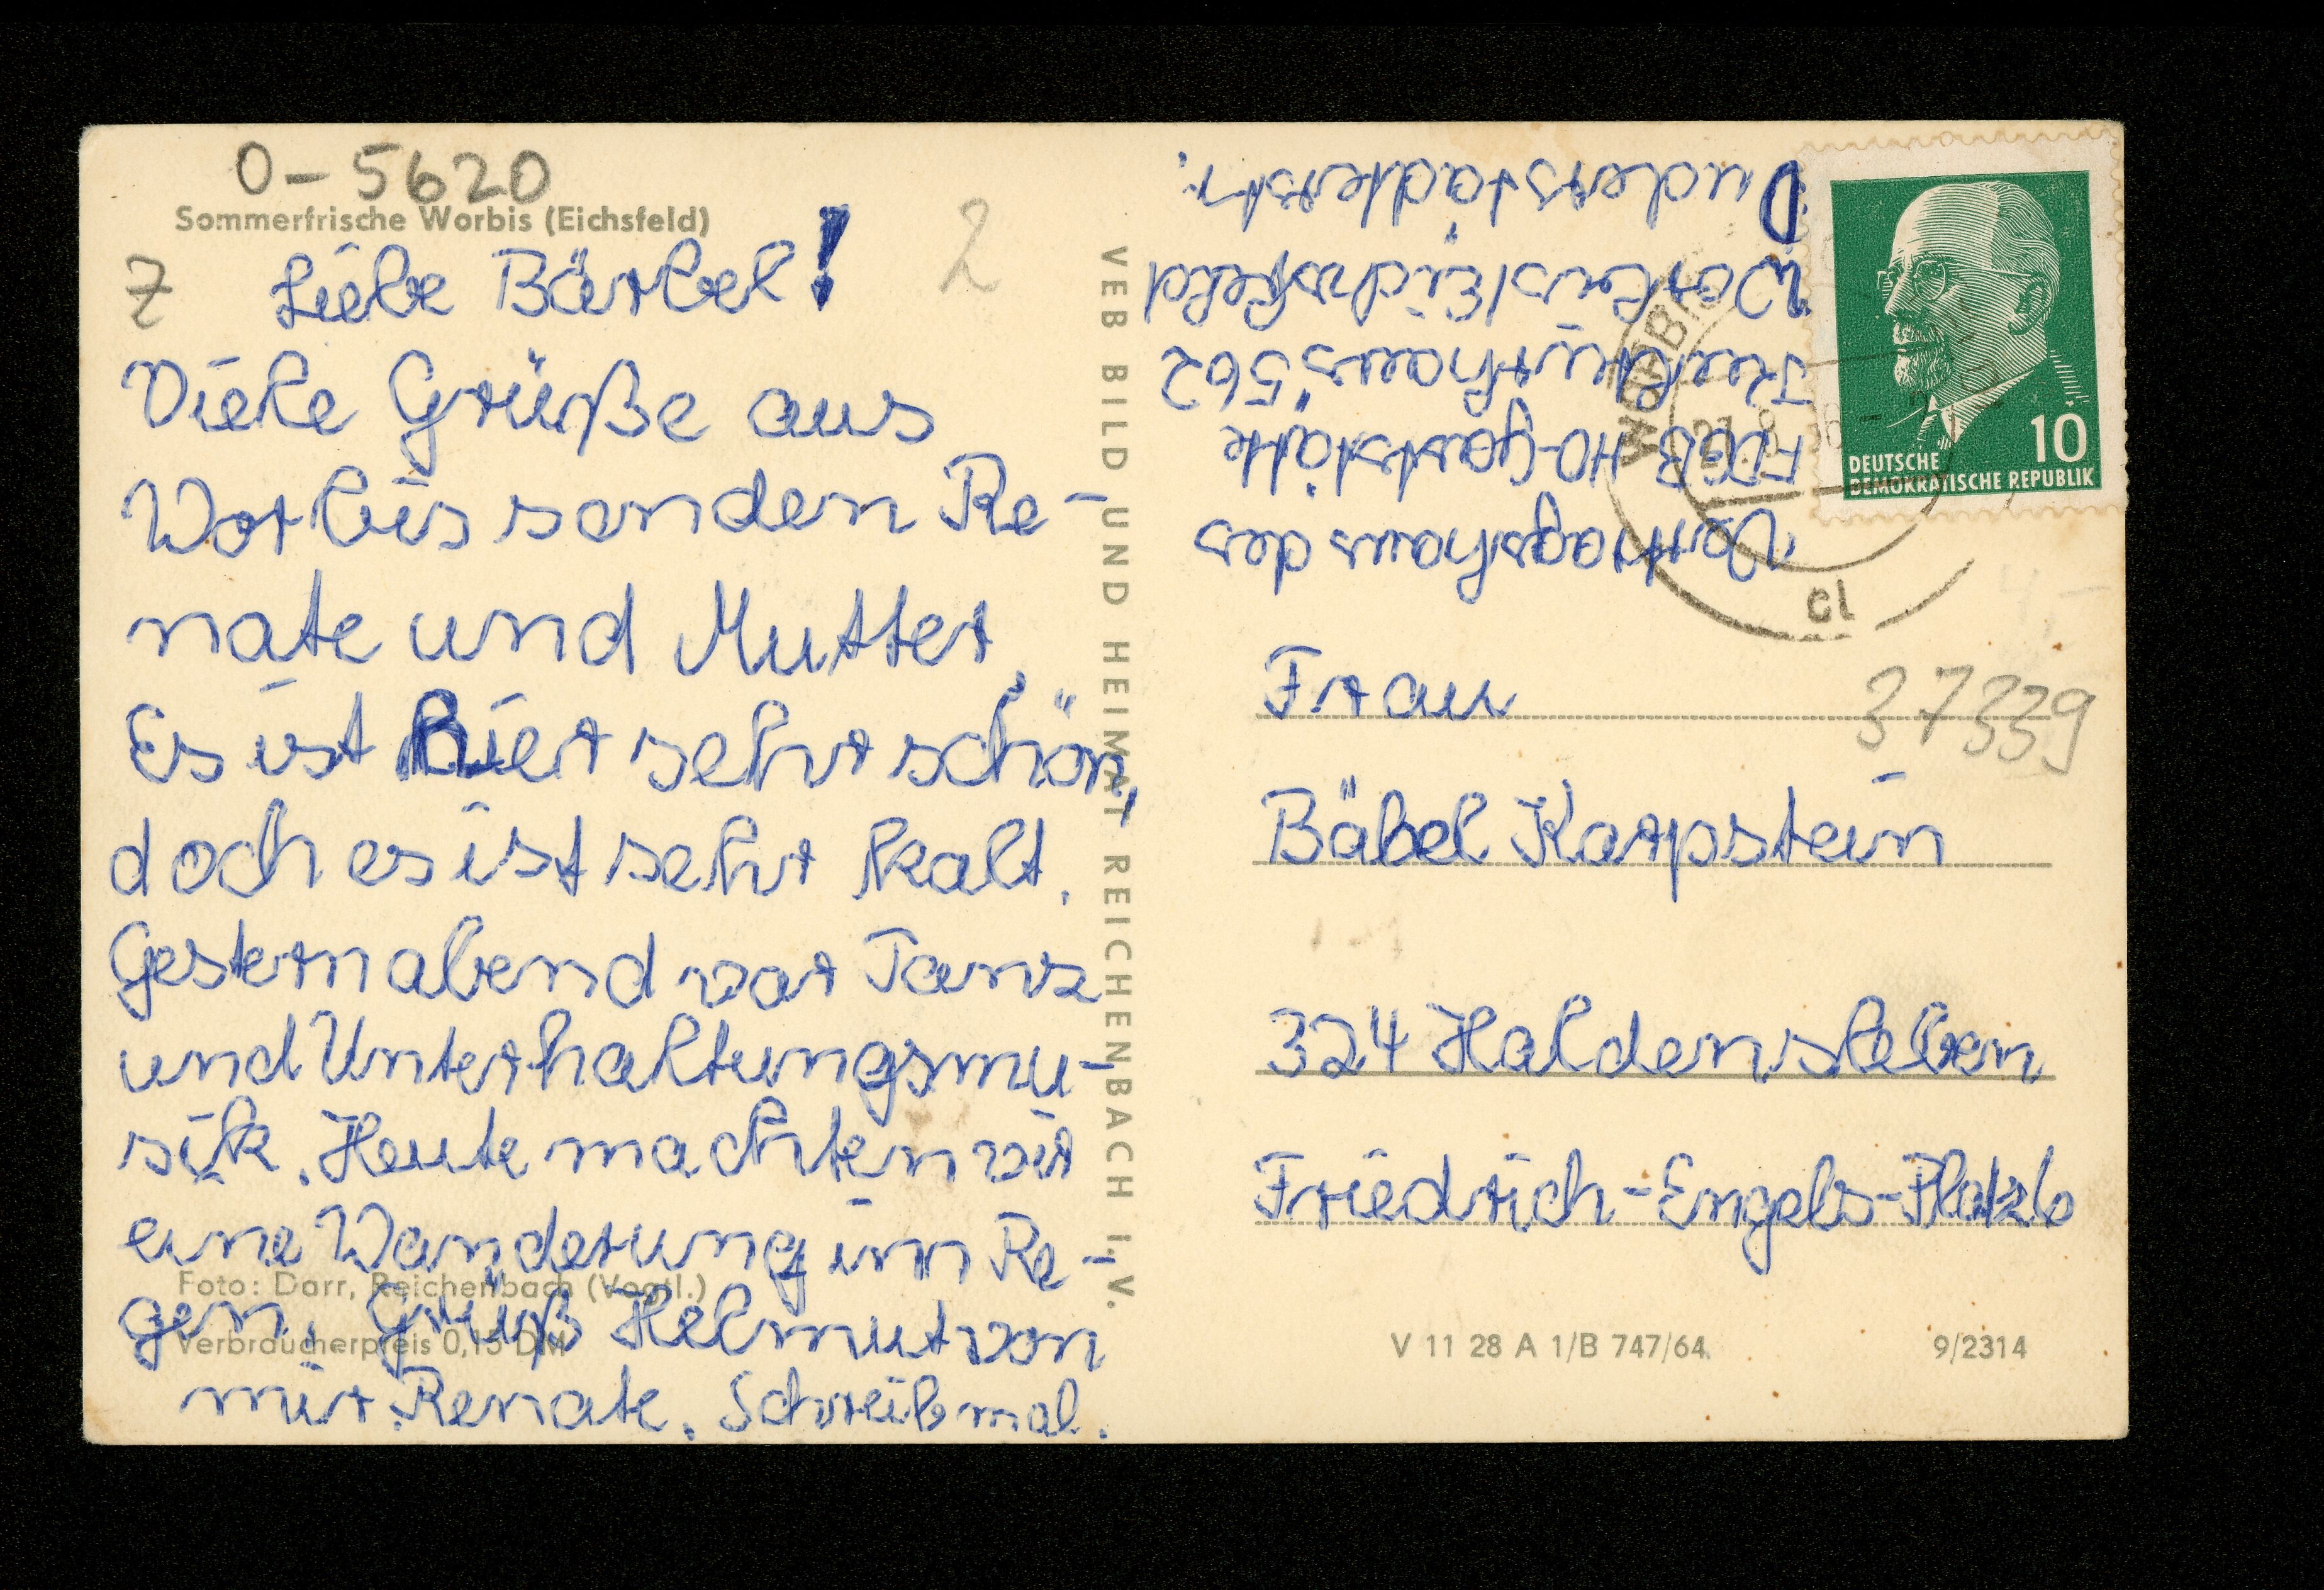 0-5620
Sommerfrische Worbis (Eichsfeld)
Z
2
Liebe Bärbel!
Viele Grüße aus
Worbis senden Re-
nate und Mutter,
Es ist hier sehr schön,
doch es ist sehr kalt.
Gestern abend war Tanz
und Unterhaltungsmu-
sik. Heute machten wir
eine Wanderung im Re-
gen. Grüß Helmut von
mir. Renate. Schreib mal.
Foto: Darr, Reichenbach (Vogtl.)
Verbraucherpreis 0,15 DM
VEB BILD UND HEIMAT REICHENBACH I. V.
Vertragshaus des
FDGB HO-Gaststätte
562
Worbis/Eichsfeld
Duderstädterstr.
WORBIS
cl
10
DEUTSCHE
DEMOKRATISCHE REPUBLIK
37339
Frau
Bäbel Karpstein
324 Haldensleben
Friedrich-Engels-Platz 6
V 11 28 A 1/B 747/64
9/2314